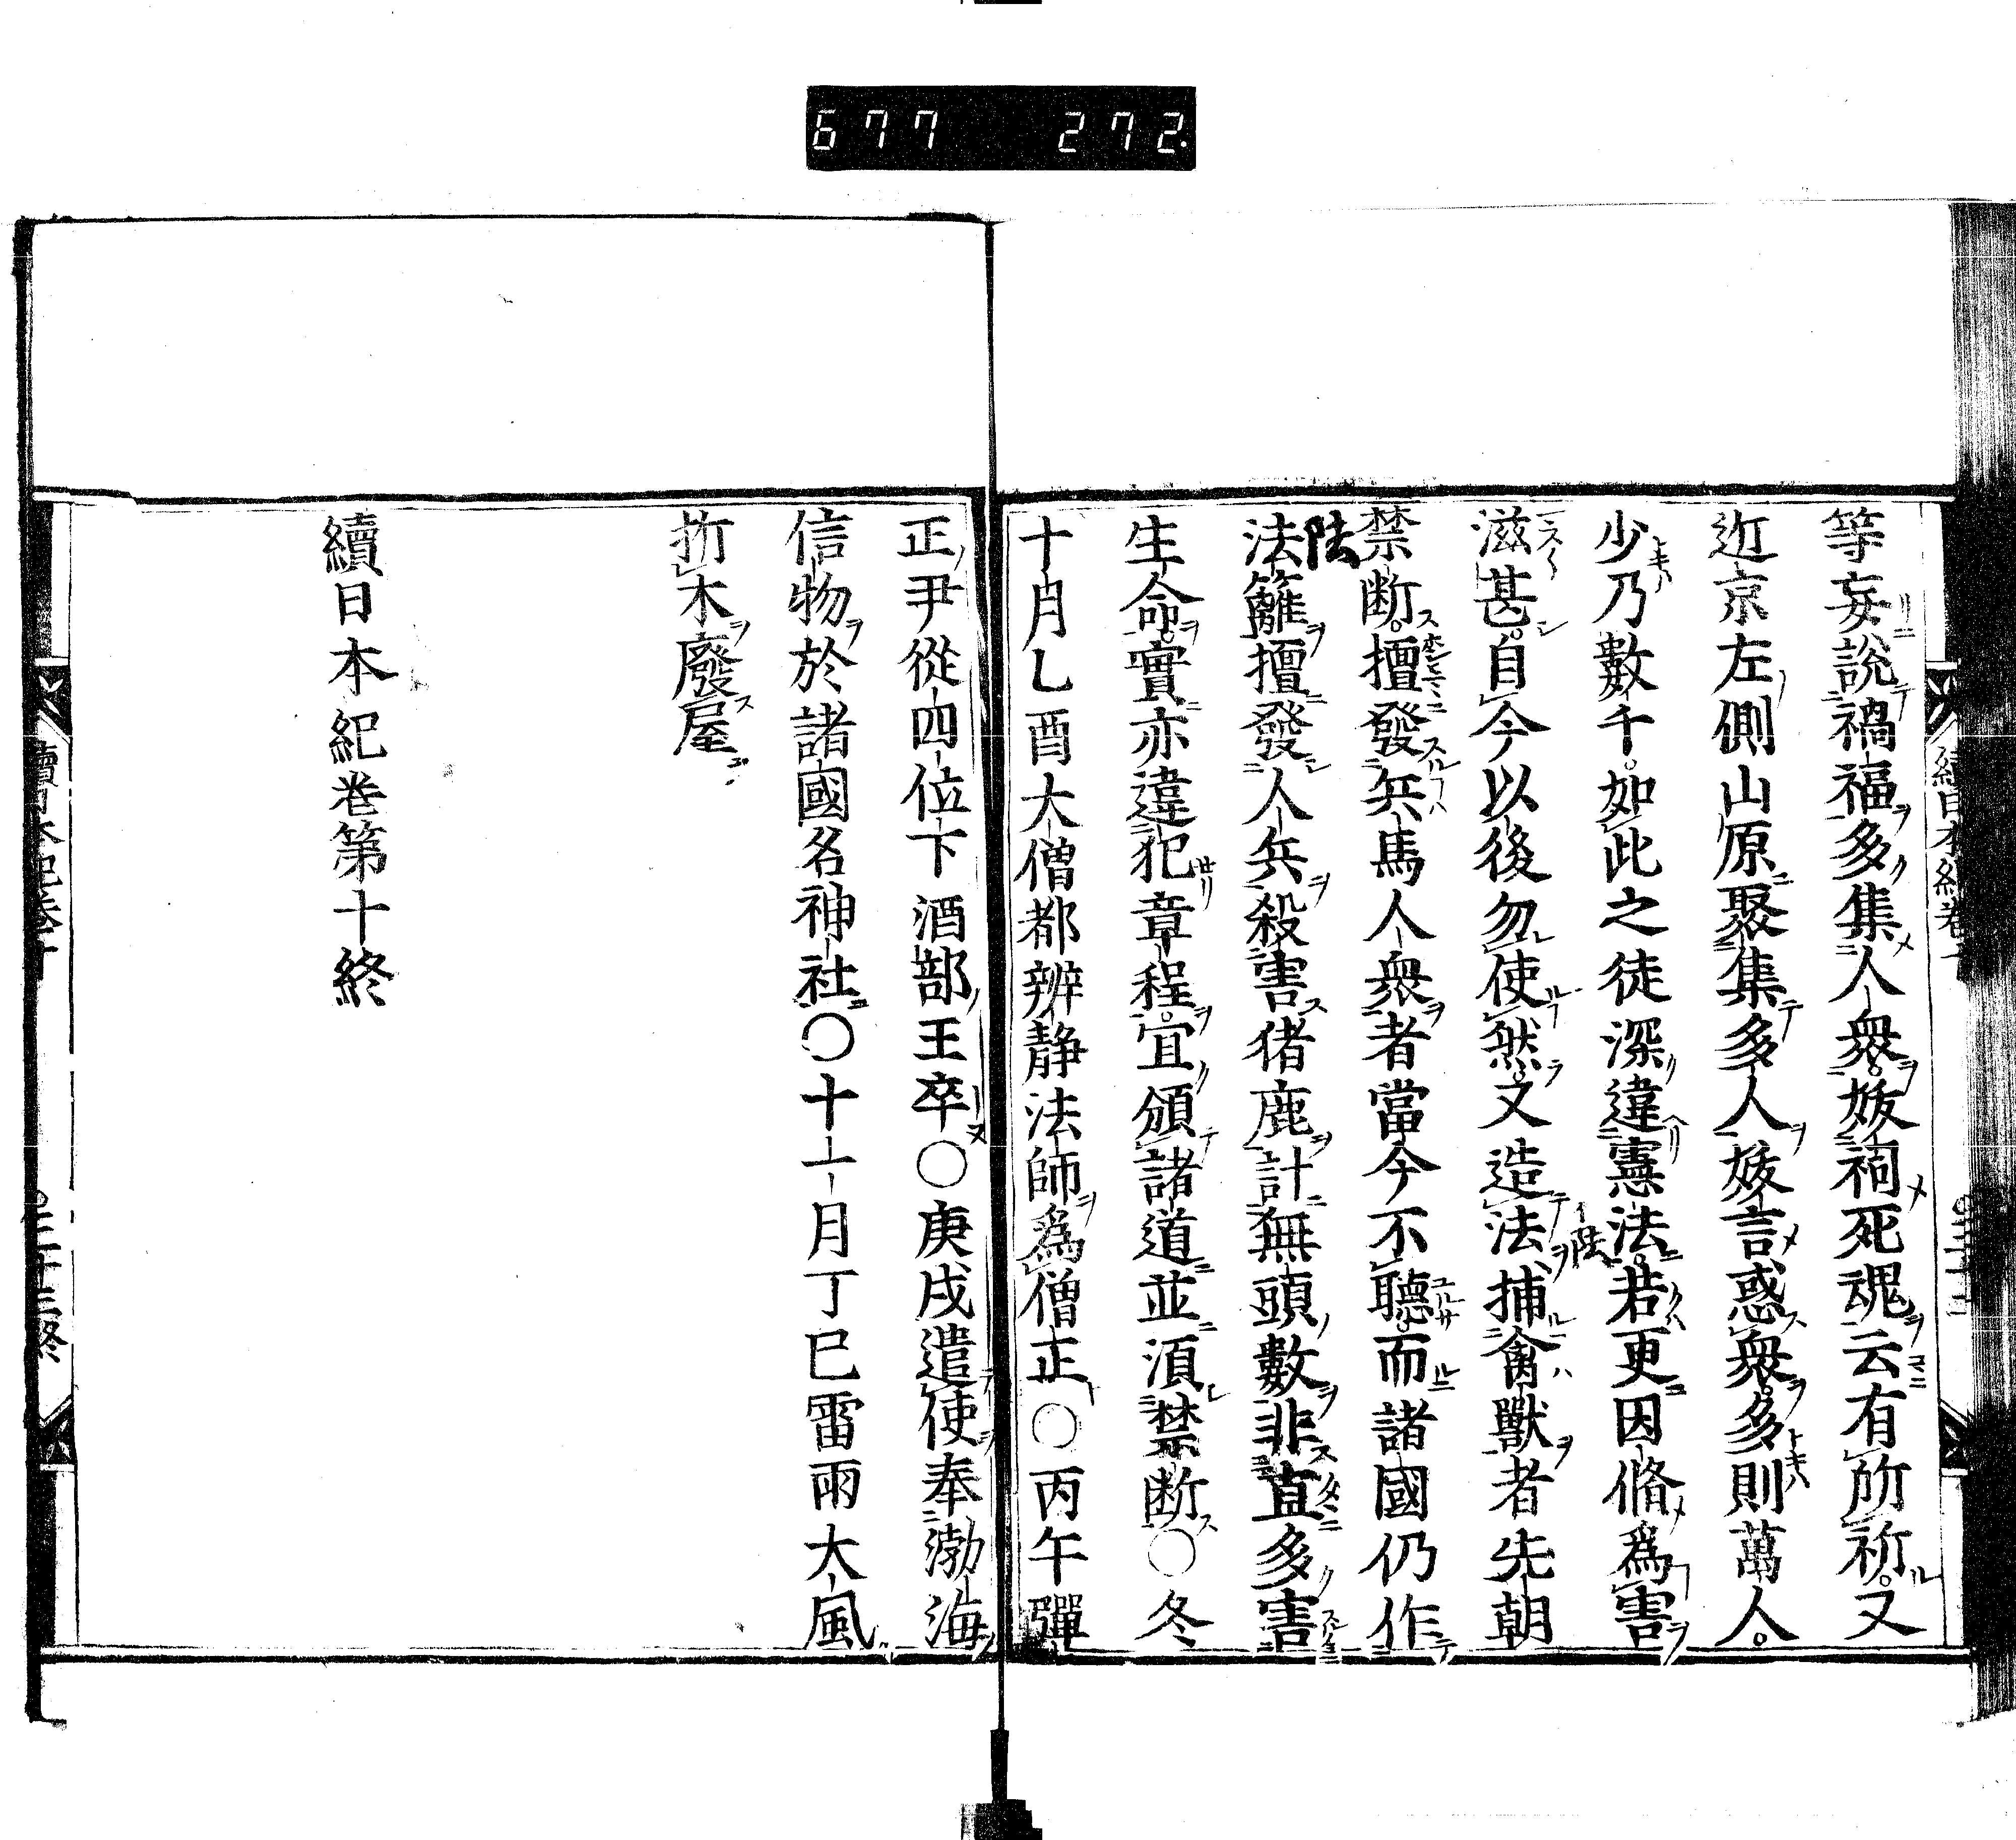 677 272.
等妄説禍福多集人衆妖祠死魂云有所祈又
近京左側山原聚集多人妖言惑衆多則萬人
少乃數千如此之徒深違憲法若更因脩爲害
滋甚自今以後勿使然又造法捕禽獸者先朝
禁断擅發兵馬人衆者當今不聽而諸國仍作
法籬擅發人兵殺害猪鹿計無頭數非直多害
生命實亦違犯章程宜頒諸道並須禁断〇冬
十月乙酉大僧都辨静法師爲僧正〇丙午彈
正尹從四位下酒部王卒〇庚戌遣使奉渤海
信物於諸國名神社〇十一月丁巳雷雨大風
折木廢屋
續日本紀巻第十終